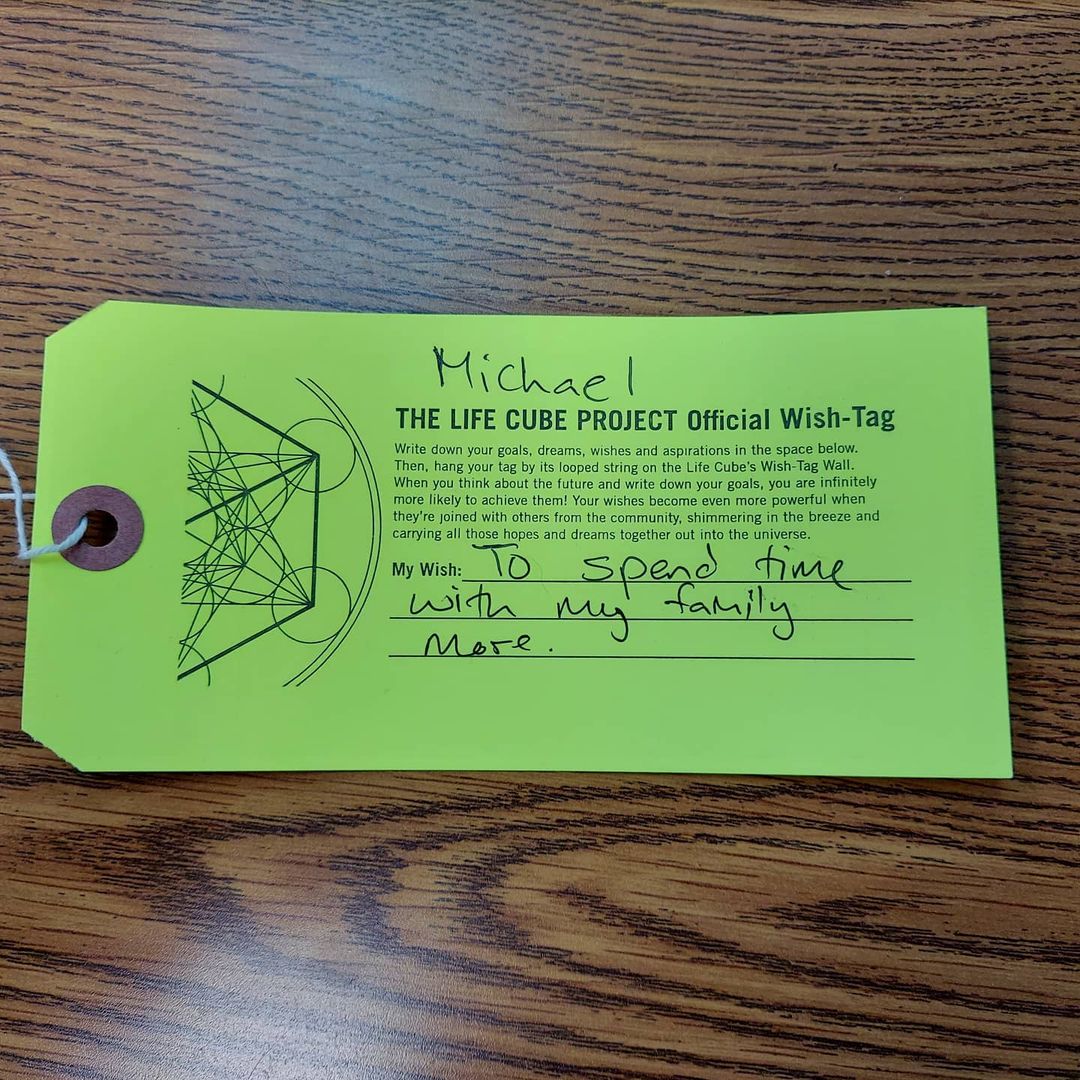 Michael
THE LIFE CUBE PROJECT Official Wish-Tag
Write down your goals, dreams, wishes and aspirations in the space below.
Then, hang your tag by its looped string on the Life Cube's Wish-Tag Wall.
When you think about the future and write down your goals, you are infinitely
more likely to achieve them! Your wishes become even more powerful when
they're joined with others from the community, shimmering in the breeze and
carrying all those hopes and dreams together out into the universe.
My Wish: To spend time
with my family
more.